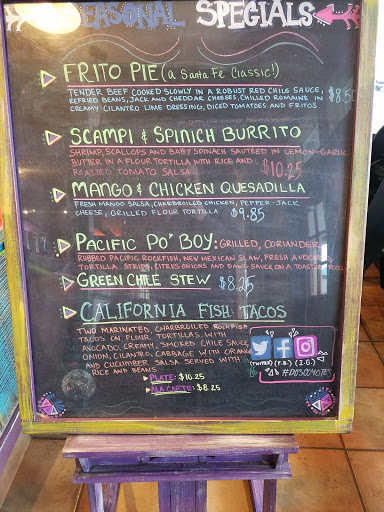 SEASONAL SPECIALS
FRITO PIE (a Santa Fe Classic!)
TENDER BEEF COOKED SLOWLY IN A ROBUST RED CHILE SAUCE,
REFRIED BEANS, JACK AND CHEDDAR CHEESES, CHILLED ROMAINE IN $8.50
CREAMY CILANTRO LIME DRESSING, DICED TOMATOES AND FRITOS
SCAMPI & SPINICH BURRITO
SHRIMP, SCALLOPS AND BABY SPINACH SAUTEED IN LEMON-GARLIC
BUTTER IN A FLOUR TORTILLA WITH RICE AND $10.25
ROASTED TOMATO SALSA
MANGO & CHICKEN QUESADILLA
FRESH MANGO SALSA, CHARBROILED CHICKEN, PEPPER-JACK
CHEESE, GRILLED FLOUR TORTILLA $9.85
PACIFIC PO' BOY: GRILLED, CORIANDER
RUBBED PACIFIC ROCKFISH, NEW MEXICAN SLAW, FRESH AVOCADO,
TORTILLA STRIPS, CITRUS ONIONS AND DAWG SAUCE ON A TOASTED ROLL
GREEN CHILE STEW $8.25
CALIFORNIA FISH TACOS
TWO MARINATED, CHARBROILED ROCKFISH
TACOS ON FLOUR TORTILLAS WITH
AVOCADO, CREAMY, SMOKED CHILE SAUCE,
ONION, CILANTRO, CABBAGE WITH ORANGE
AND CUCUMBER SALSA. SERVED WITH
RICE AND BEANS
PLATE: $10.25
ALA CARTE: $8.25
(TWITTER) (F.B.) (I.G.)
#DOSCOYOTES